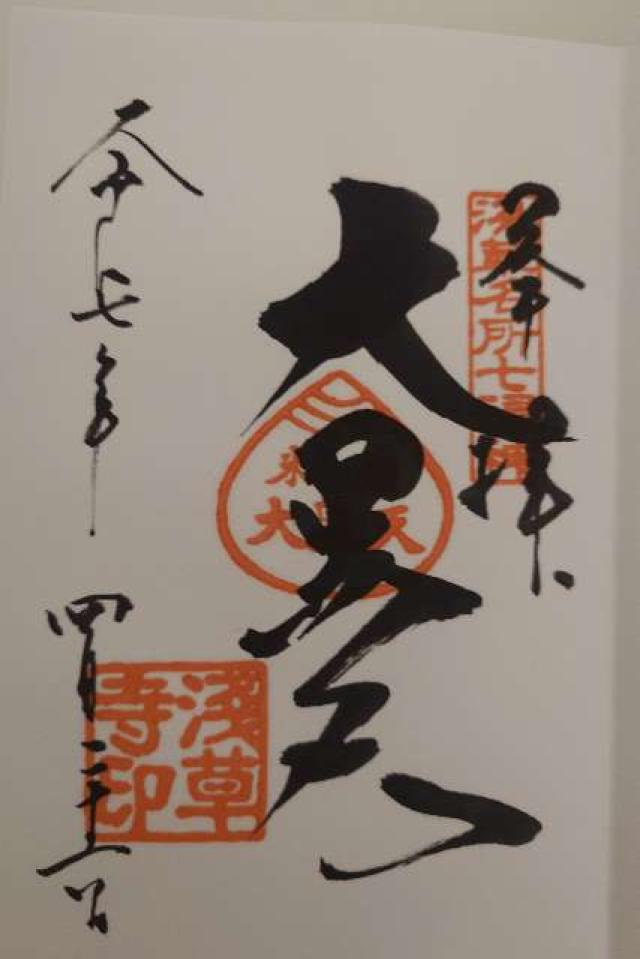 奉拝
浅草名所七福神
大黒天
大黒天
令和七年
四月二十日
淺草寺印